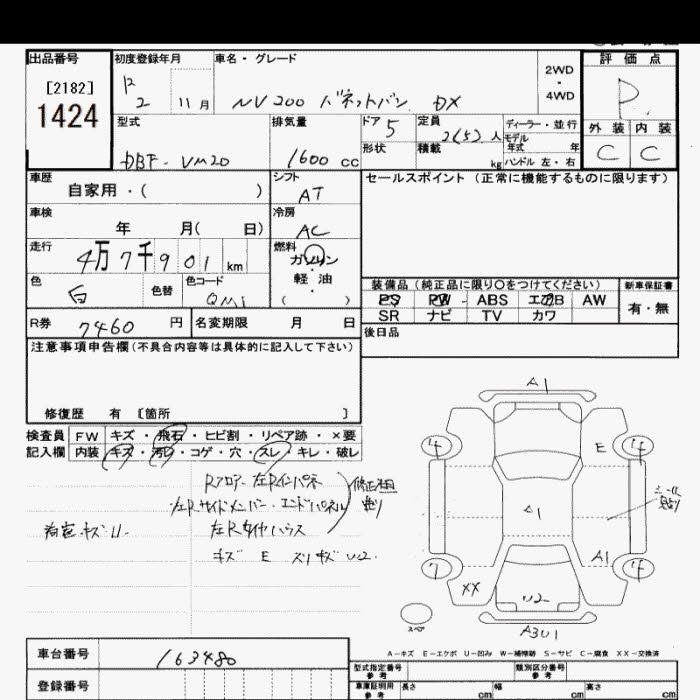 出品番号 初度登録年月 車名・グレード 評価点
[2182]
1424
12
2 11月 NV200 バネットバン DX
2WD
・
4WD
P
外装 内装
C C
型式 排気量 ドア 5 定員 2(5)人 ディーラー・並行
モデル
年式 年
DBF-VM20 1600cc 形状 積載 kg ハンドル 左・右
車歴 シフト セールスポイント(正常に機能するものに限ります)
自家用・( ) AT
車検 冷房
年 月( 日) AC
走行 燃料
4万7千901km ガソリン
・
軽油
( )
色 色替 色コード
白 QM1
装備品(純正品に限り○をつけてください) 新車保証書
PS PW ABS エアB AW 有・無
SR ナビ TV カワ
R券 7460円 名変期限 月 日
後日品
注意事項申告欄(不具合内容等は具体的に記入して下さい)
修復歴 有 〔箇所 〕
検査員 FW キズ・飛石・ヒビ割・リペア跡・×要
記入欄 内装 キズ・汚れ・コゲ・穴・スレ・キレ・破レ
Rフロアー 左Rインパネ
左Rサイドメンバー・エンドパネル
左Rタイヤハウス
キズ E スリキズ U2.
A1
4 4
E
A1
A1
7 4
XX
U2
A3U1
スペア
A-キズ E-エクボ U-凹み W-補修跡 S-サビ C-腐食 XX-交換済
車台番号 163480
登録番号
型式指定番号
参考
類別区分番号
参考
車庫証明用
参考
長さ cm 幅 cm 高さ cm